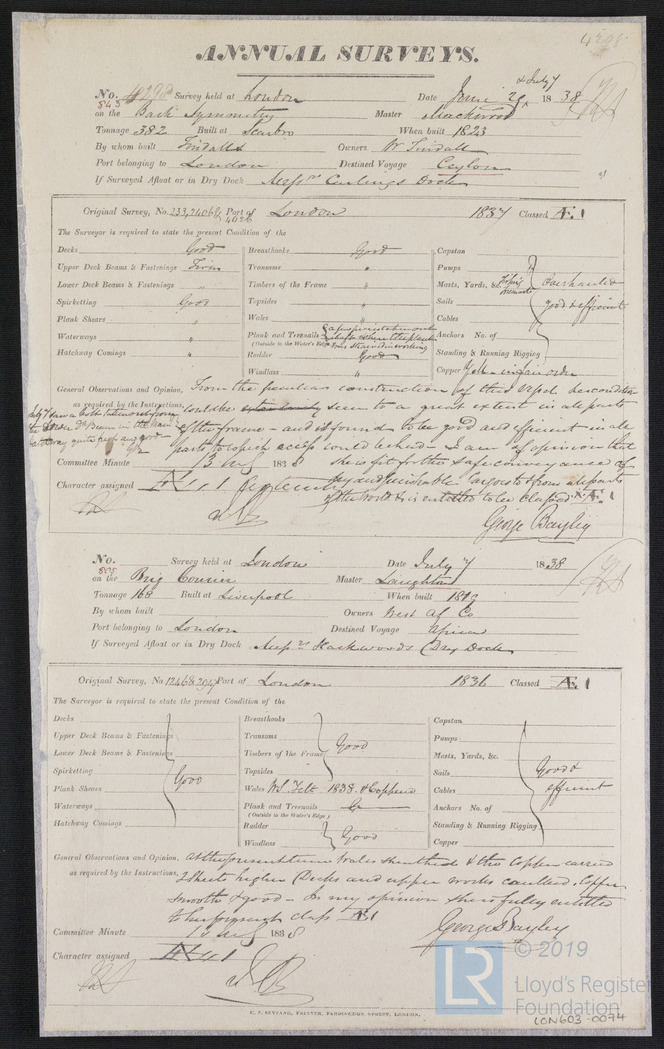 ANNUAL SURVEYS.
No. Survey held at London Date June 29 & July 7 1838
543
on the Bark Symmetry Master Mackwood
Tonnage 382 Built at Scarbro When built 1823
By whom built Tindalls Owners W Tindall
Port belonging to London Destined Voyage Ceylon
If Surveyed Afloat or in Dry Dock Messrs Curlings Dock
Original Survey, No. 233, 24068 Port of London 1837 Classed Æ.1
The Surveyor is required to state the present Condition of the
Decks Good
Upper Deck Beams & Fastenings Firm
Lower Deck Beams & Fastenings "
Spirketting Good
Plank Shears "
Waterways "
Hatchway Comings "
Breasthooks Good
Transoms "
Timbers of the Frame "
Topsides "
Wales "
Plank and Treenails
(Outside to the Water's Edge)
Rudder Good
Windlass "
Capstan
Pumps
Masts, Yards, &c.
Sails good & efficient
Cables
Anchors No. of
Standing & Running Rigging
Copper in fair order
General Observations and Opinion, From the peculiar construction of this vessel her condition
as required by the Instructions, could be seen to a great extent in all parts
of the frame - and is found to be good and efficient in all
parts to which access could be had - I am of opinion that
she is fit for the safe conveyance of
dry and perishable cargoes to & from all parts
of the World & is entitled to be classed Æ.1
Committee Minute 13 Aug 1838
Character assigned Æ 1
George Bayley
No. Survey held at London Date July 7 1838
on the Brig Courier Master Laughton
Tonnage 168 Built at Liverpool When built
By whom built Owners West Af Co
Port belonging to London Destined Voyage Africa
If Surveyed Afloat or in Dry Dock Messrs Mackwoods (Dry Dock
Original Survey, No 12468 Port of London 1836 Classed Æ.1
The Surveyor is required to state the present Condition of the
Decks
Upper Deck Beams & Fastenings
Lower Deck Beams & Fastenings
Spirketting Good
Plank Shears
Waterways
Hatchway Comings
Breasthooks
Transoms Good
Timbers of the Frame
Topsides
Wales 1838 & Coppered
Plank and Treenails
(Outside to the Water's Edge)
Rudder Good
Windlass
Capstan
Pumps
Masts, Yards, &c.
Sails Good &
Cables efficient
Anchors No. of
Standing & Running Rigging
Copper
General Observations and Opinion, At the present time Wales sheathed & the Copper carried
as required by the Instructions, 2 Sheets higher (Decks and upper works caulked, Copper
smooth & good - In my opinion she is fully entitled
to her former class Æ1
Committee Minute 13 Aug 1838
George Bayley
Character assigned Æ 1
© 2019
LR
Lloyd's Register
Foundation
LON603-0074